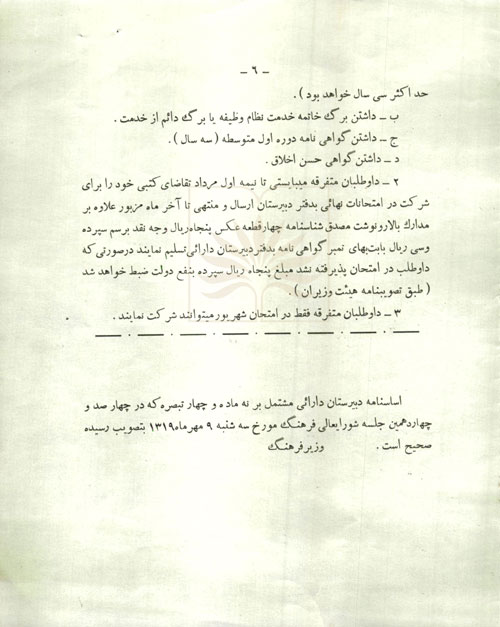 ـ ٦ ـ
حد اکثر سی سال خواهد بود ) .
ب ــ داشتن برگ خاتمه خدمت نظام وظیفه یا برگ دائم از خدمت .
ج ــ داشتن گواهی نامه دوره اول متوسطه ( سه سال ) .
د ــ داشتن گواهی حسن اخلاق .
۲ ــ داوطلبان متفرقه میبایستی تا نیمه اول مرداد تقاضای کتبی خود را برای
شرکت در امتحانات نهائی بدفتر دبیرستان ارسال و منتهی تا آخر ماه مزبور علاوه بر
مدارك بالارونوشت مصدق شناسنامه چهارقطعه عکس پنجاه ریال وجه نقد برسم سپرده
وسی ریال بابت بهای تمبر گواهی نامه بدفتر دبیرستان دارائی تسلیم نمایند درصورتی که
داوطلب در امتحان پذیرفته نشد مبلغ پنجاه ریال سپرده بنفع دولت ضبط خواهد شد
( طبق تصویبنامه هیئت وزیران ) .
۳ ــ داوطلبان متفرقه فقط در امتحان شهریور میتوانند شرکت نمایند .
اساسنامه دبیرستان دارائی مشتمل بر نه ماده و چهار تبصره که در چهار صد و
چهاردهمین جلسه شورایعالی فرهنگ مورخ سه شنبه ۹ مهرماه ۱۳۱۹ بتصویب رسیده
صحیح است . وزیر فرهنگ